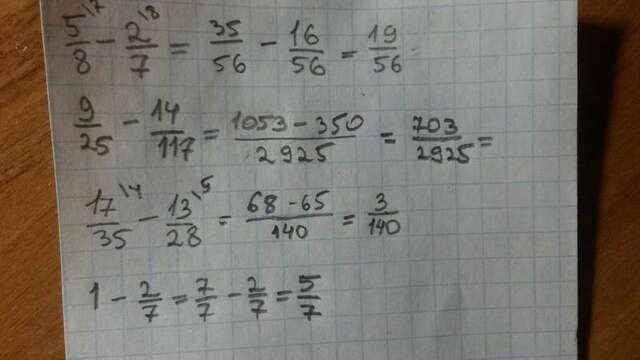 5\7/8 - 2\8/7 = 35/56 - 16/56 = 19/56
9/25 - 14/117 = 1053-350/2925 = 703/2925 =
17\4/35 - 13\5/28 = 68-65/140 = 3/140
1 - 2/7 = 7/7 - 2/7 = 5/7